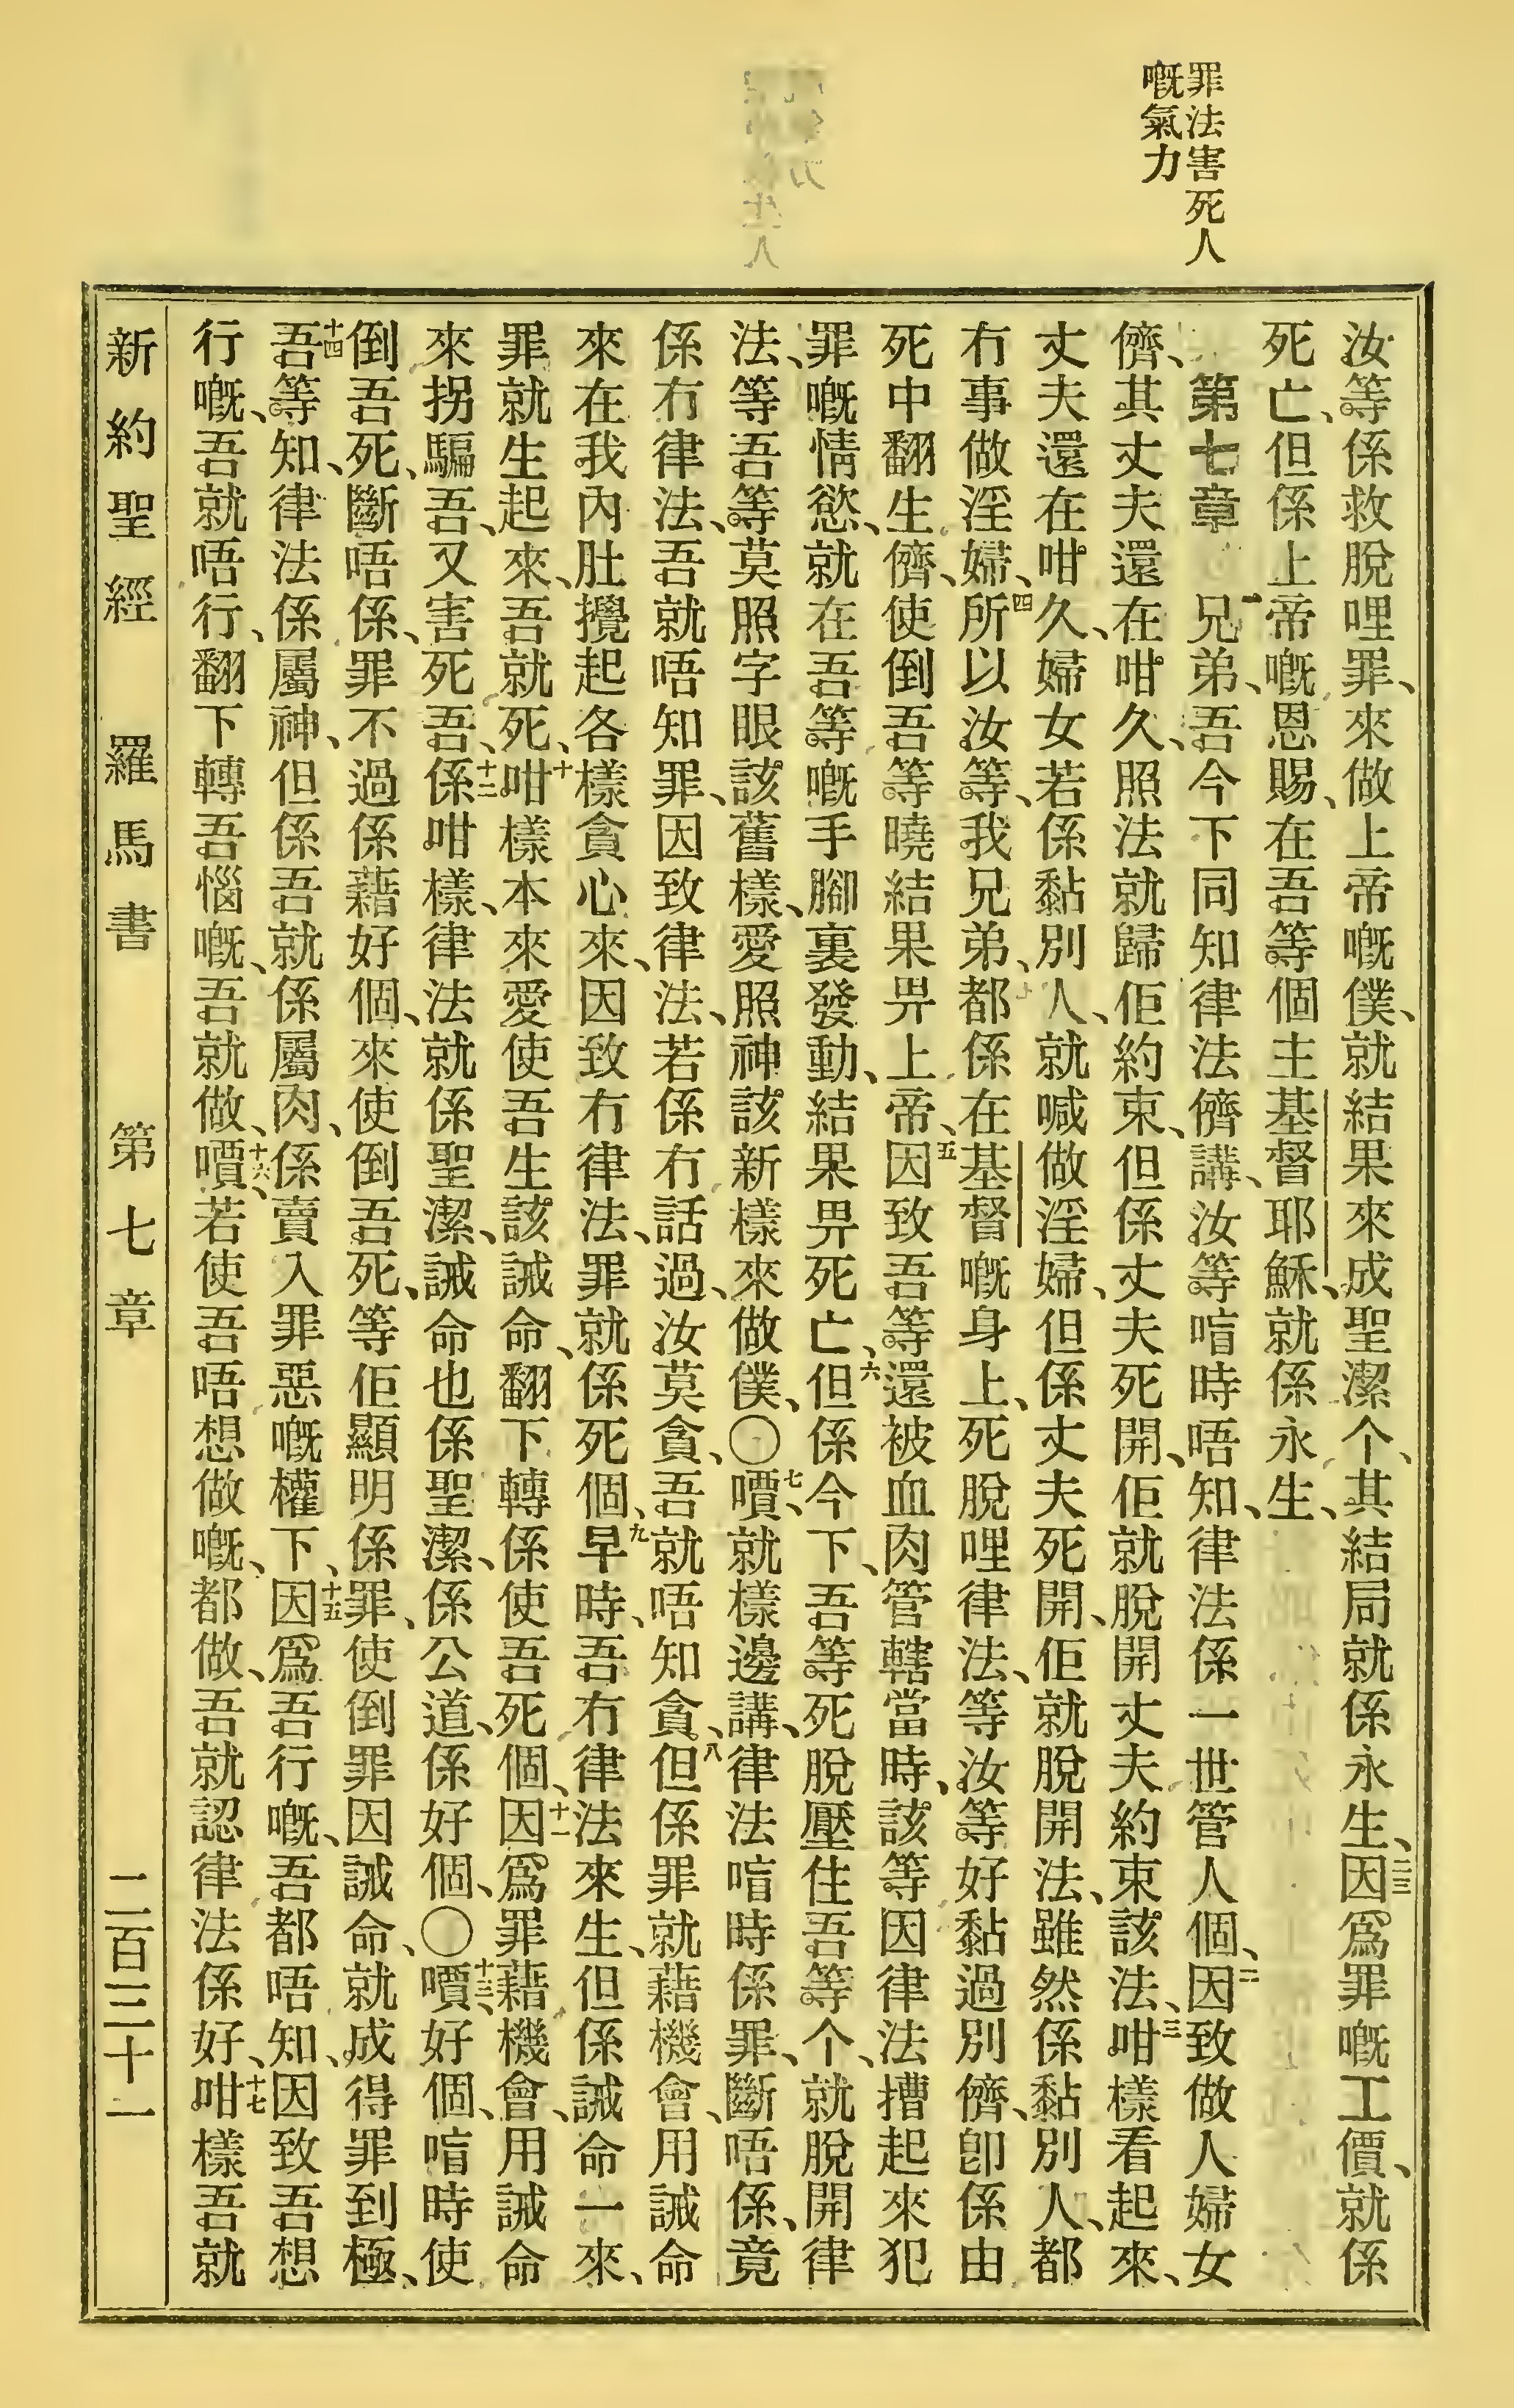 罪法害死人
嘅氣力
汝等係救脫哩罪、來做上帝嘅僕、就結果來成聖潔个、其結局就係永生、二三因爲罪嘅工價、就係
死亡、但係上帝嘅恩賜、在吾等個主基督耶穌、就係永生、
第七章 一兄弟、吾今下同知律法儕講、汝等㫘時唔知、律法係一世管人個、二因致做人婦女
儕、其丈夫還在咁久、照法就歸佢約束、但係丈夫死開、佢就脫開丈夫約束該法、三咁樣看起來、
丈夫還在咁久、婦女若係黏別人、就喊做淫婦、但係丈夫死開、佢就脫開法、雖然係黏別人、都
冇事做淫婦、四所以汝等、我兄弟、都係在基督嘅身上、死脫哩律法、等汝等好黏過別儕、卽係由
死中翻生儕、使倒吾等曉結果畀上帝、五因致吾等還被血肉管轄當時、該等因律法㨪起來犯
罪嘅情慾、就在吾等嘅手腳裏發動、結果畀死亡、六但係今下、吾等死脫壓住吾等个、就脫開律
法、等吾等莫照字眼該舊樣、愛照神該新樣來做僕、〇七嘳、就樣邊講、律法㫘時係罪、斷唔係、竟
係冇律法、吾就唔知罪、因致律法、若係冇話過、汝莫貪、吾就唔知貪、八但係罪就藉機會、用誡命
來在我內肚攪起各樣貪心來、因致冇律法、罪就係死個、九早時、吾冇律法來生、但係誡命一來、
罪就生起來、吾就死、十咁樣本來愛使吾生該誡命、翻下轉係使吾死個、十一因爲罪藉機會、用誡命
來拐騙吾、又害死吾、十二係咁樣、律法就係聖潔、誡命也係聖潔、係公道、係好個、〇十三嘳、好個、㫘時使
倒吾死、斷唔係、罪不過係藉好個、來使倒吾死、等佢顯明係罪、使倒罪因誡命、就成得罪到極、
十四吾等知、律法係屬神、但係吾就係屬肉、係賣入罪惡嘅權下、十五因爲吾行嘅、吾都唔知、因致吾想
行嘅、吾就唔行、翻下轉吾惱嘅、吾就做、十六嘳、若使吾唔想做嘅、都做、吾就認律法係好、十七咁樣吾就
新約聖經 羅馬書 第七章 二百三十一